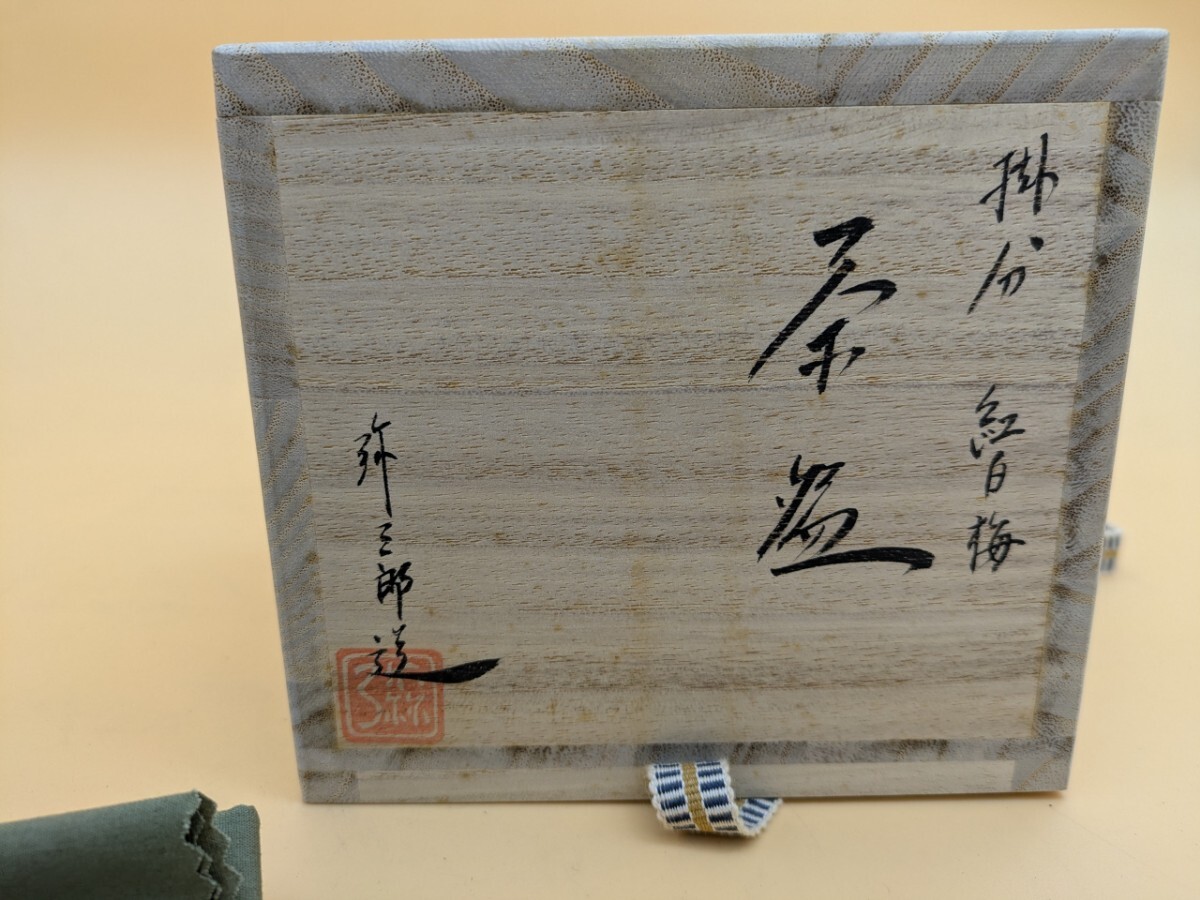 掛分 紅白梅
茶盌
弥三郎造
弥